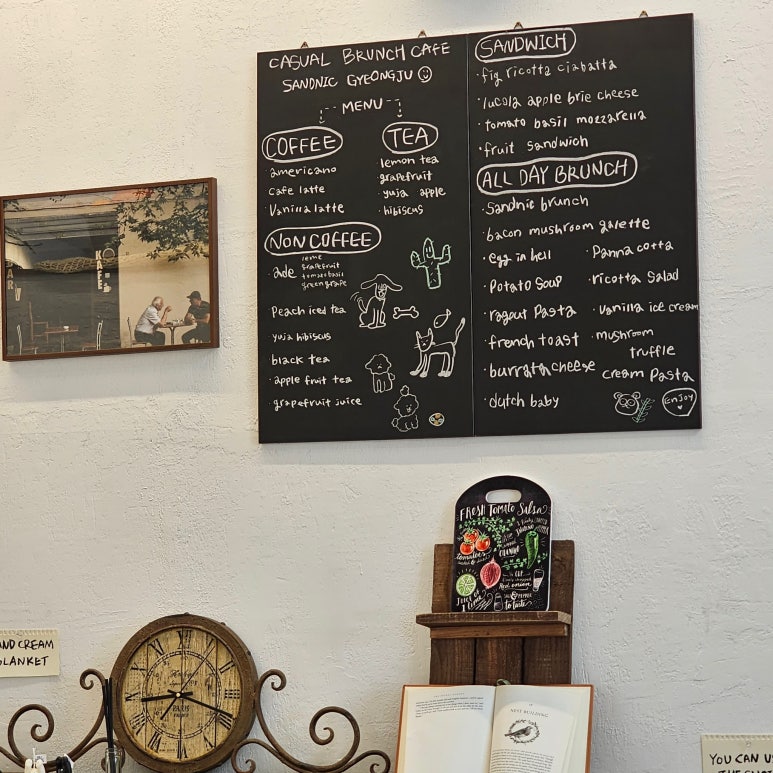 CASUAL BRUNCH CAFE
SANDNIC GYEONGJU
MENU
COFFEE
·americano
cafe latte
·Vanilla latte
TEA
lemon tea
grapefruit
·yuja apple
·hibiscus
NON COFFEE
·ade
leme
grapefruit
tomato basil
green grape
Peach iced tea
yuja hibiscus
black tea
·apple fruit tea
·grapefruit juice
SANDWICH
·fig ricotta ciabatta
·lucola apple brie cheese
·tomato basil mozzarella
·fruit sandwich
ALL DAY BRUNCH
·Sandnic brunch
·bacon mushroom galette
·egg in hell
·Potato soup
·ragout Pasta
·french toast
·burrata cheese
·dutch baby
·Panna cotta
·ricotta salad
·Vanilla ice cream
·mushroom
truffle
cream Pasta
ENJOY
BAR
KAFE
FRESH TOMATO SALSA
tomatoes
CILANTRO
Red onion
JUICE OF
1 LIME
to taste
AND CREAM
BLANKET
PARIS
NEST BUILDING
YOU CAN U